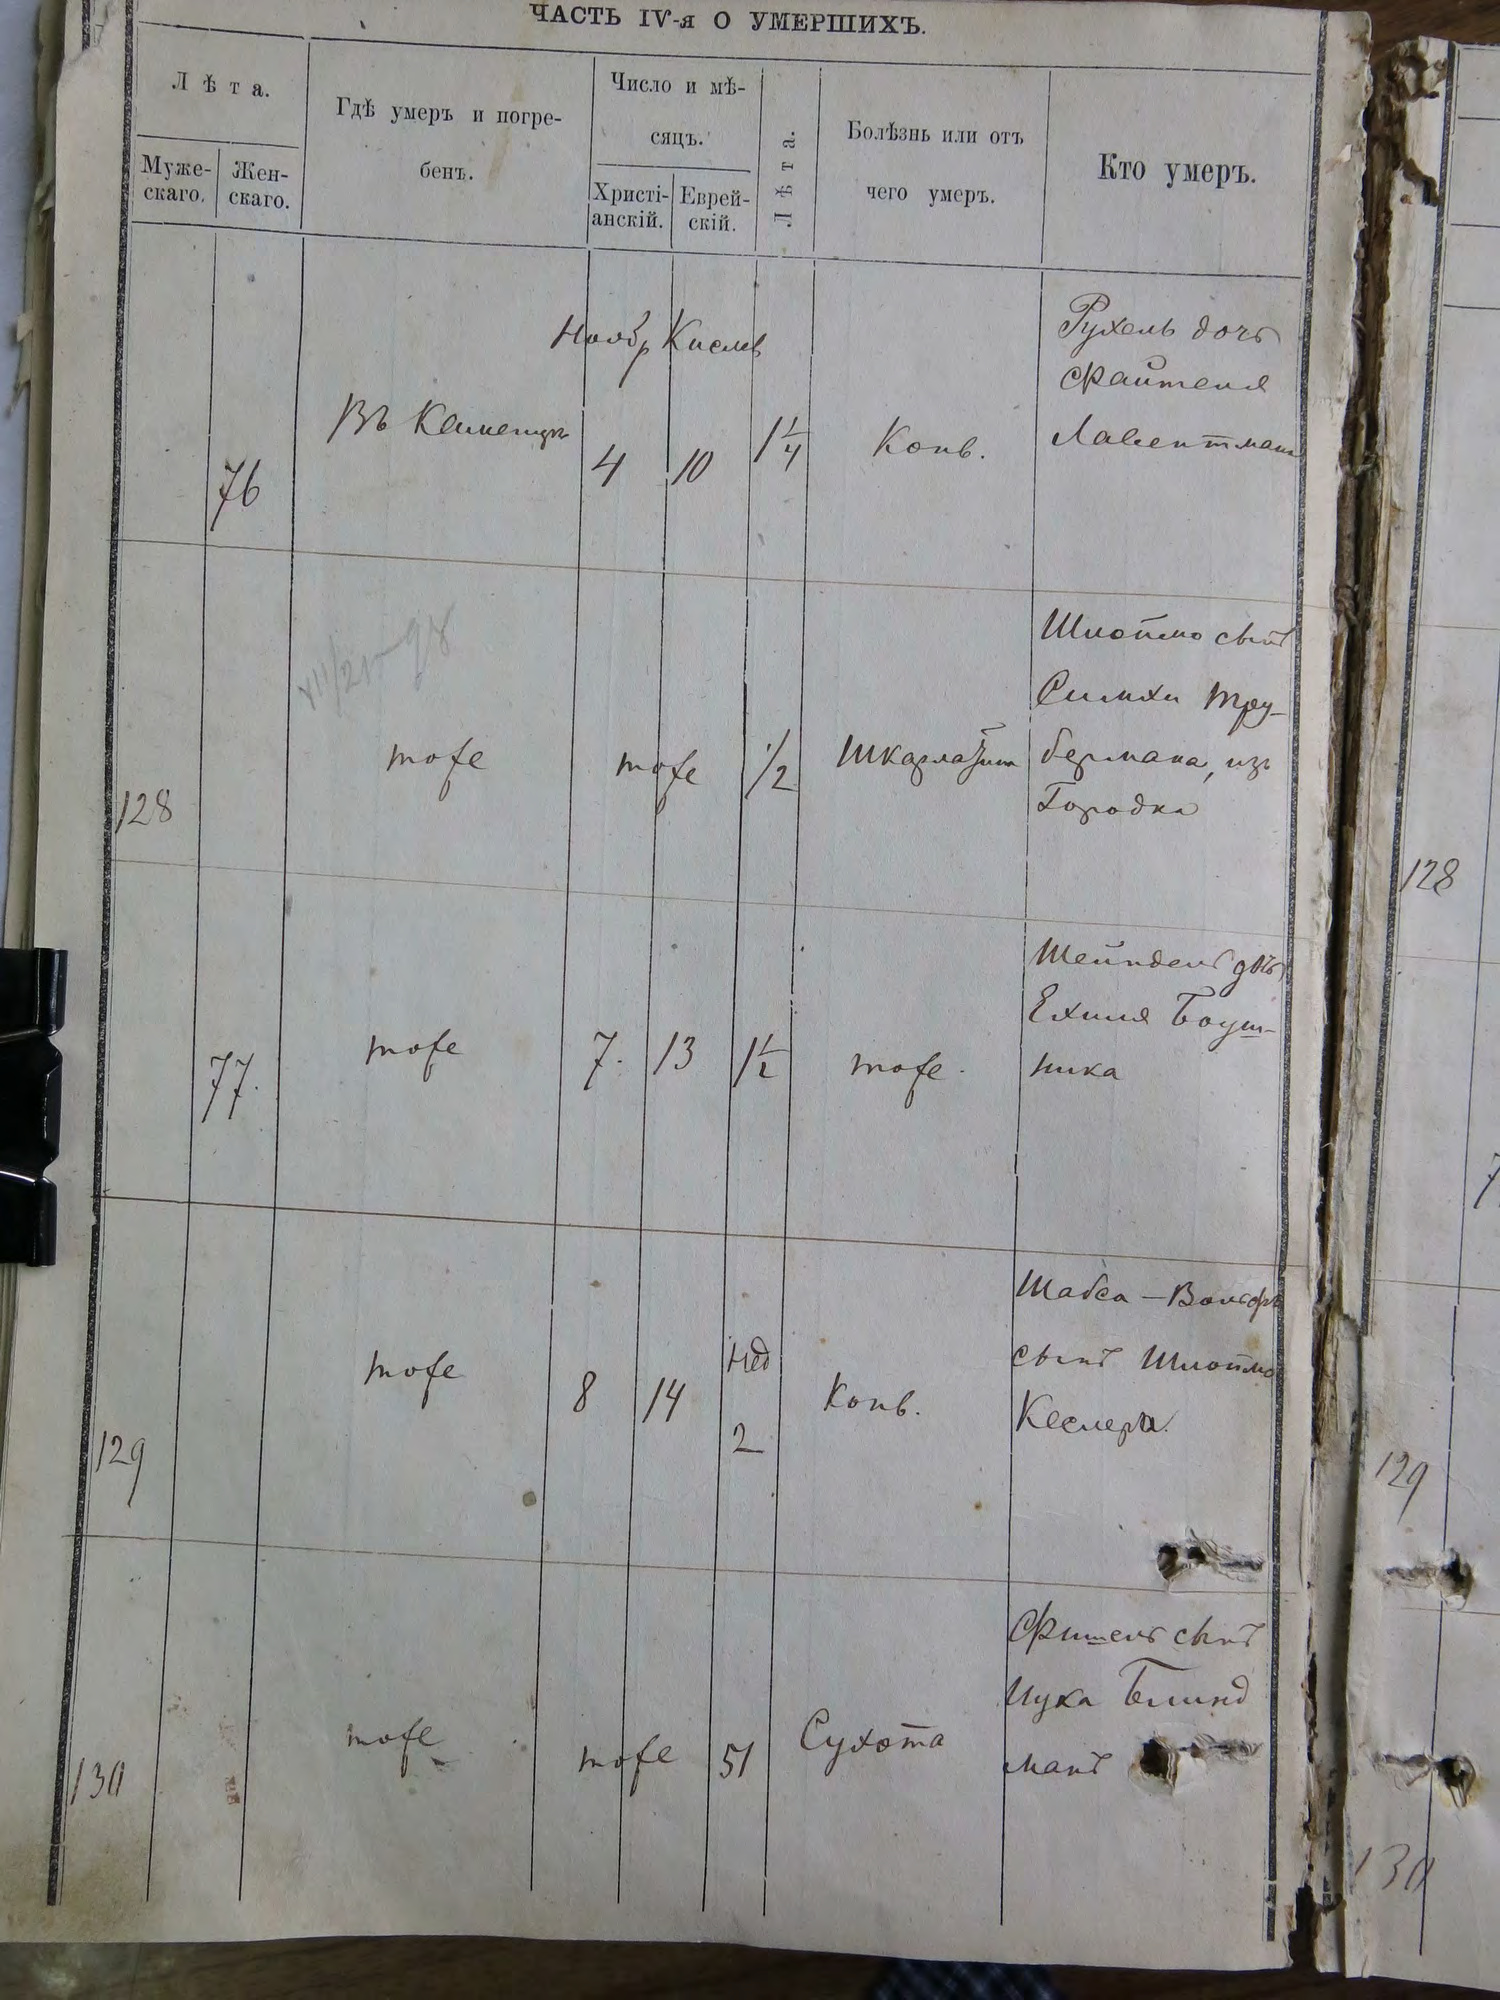 ЧАСТЬ IV-я О УМЕРШИХЪ.
Лѣта.
Муже-
скаго.
Жен-
скаго.
Гдѣ умеръ и погре-
бенъ.
Число и мѣ-
сяцъ.
Христі-
анскій.
Еврей-
скій.
Лѣта.
Болѣзнь или отъ
чего умеръ.
Кто умеръ.
76
Въ Каменцѣ
Нояб Кислев
4 10
1 1/4
Конв.
Рухель дочь
Файтеля
128
тоже
тоже
1/2
Шкарлатина
Шлоймо сынъ
Симхи Тру-
бермана, изъ
Городка
77.
тоже
7. 13
1 1/2
тоже.
Шейндель дочь
Ехиля Боуш-
ника
129
тоже
8 14
Нед
2
Конв.
Шабса-Вольфъ
сынъ Шлоймо
Кеслера.
130
тоже
тоже
51
Сухота
Фишель сынъ
Ицка Блинд
манъ
128
129
130